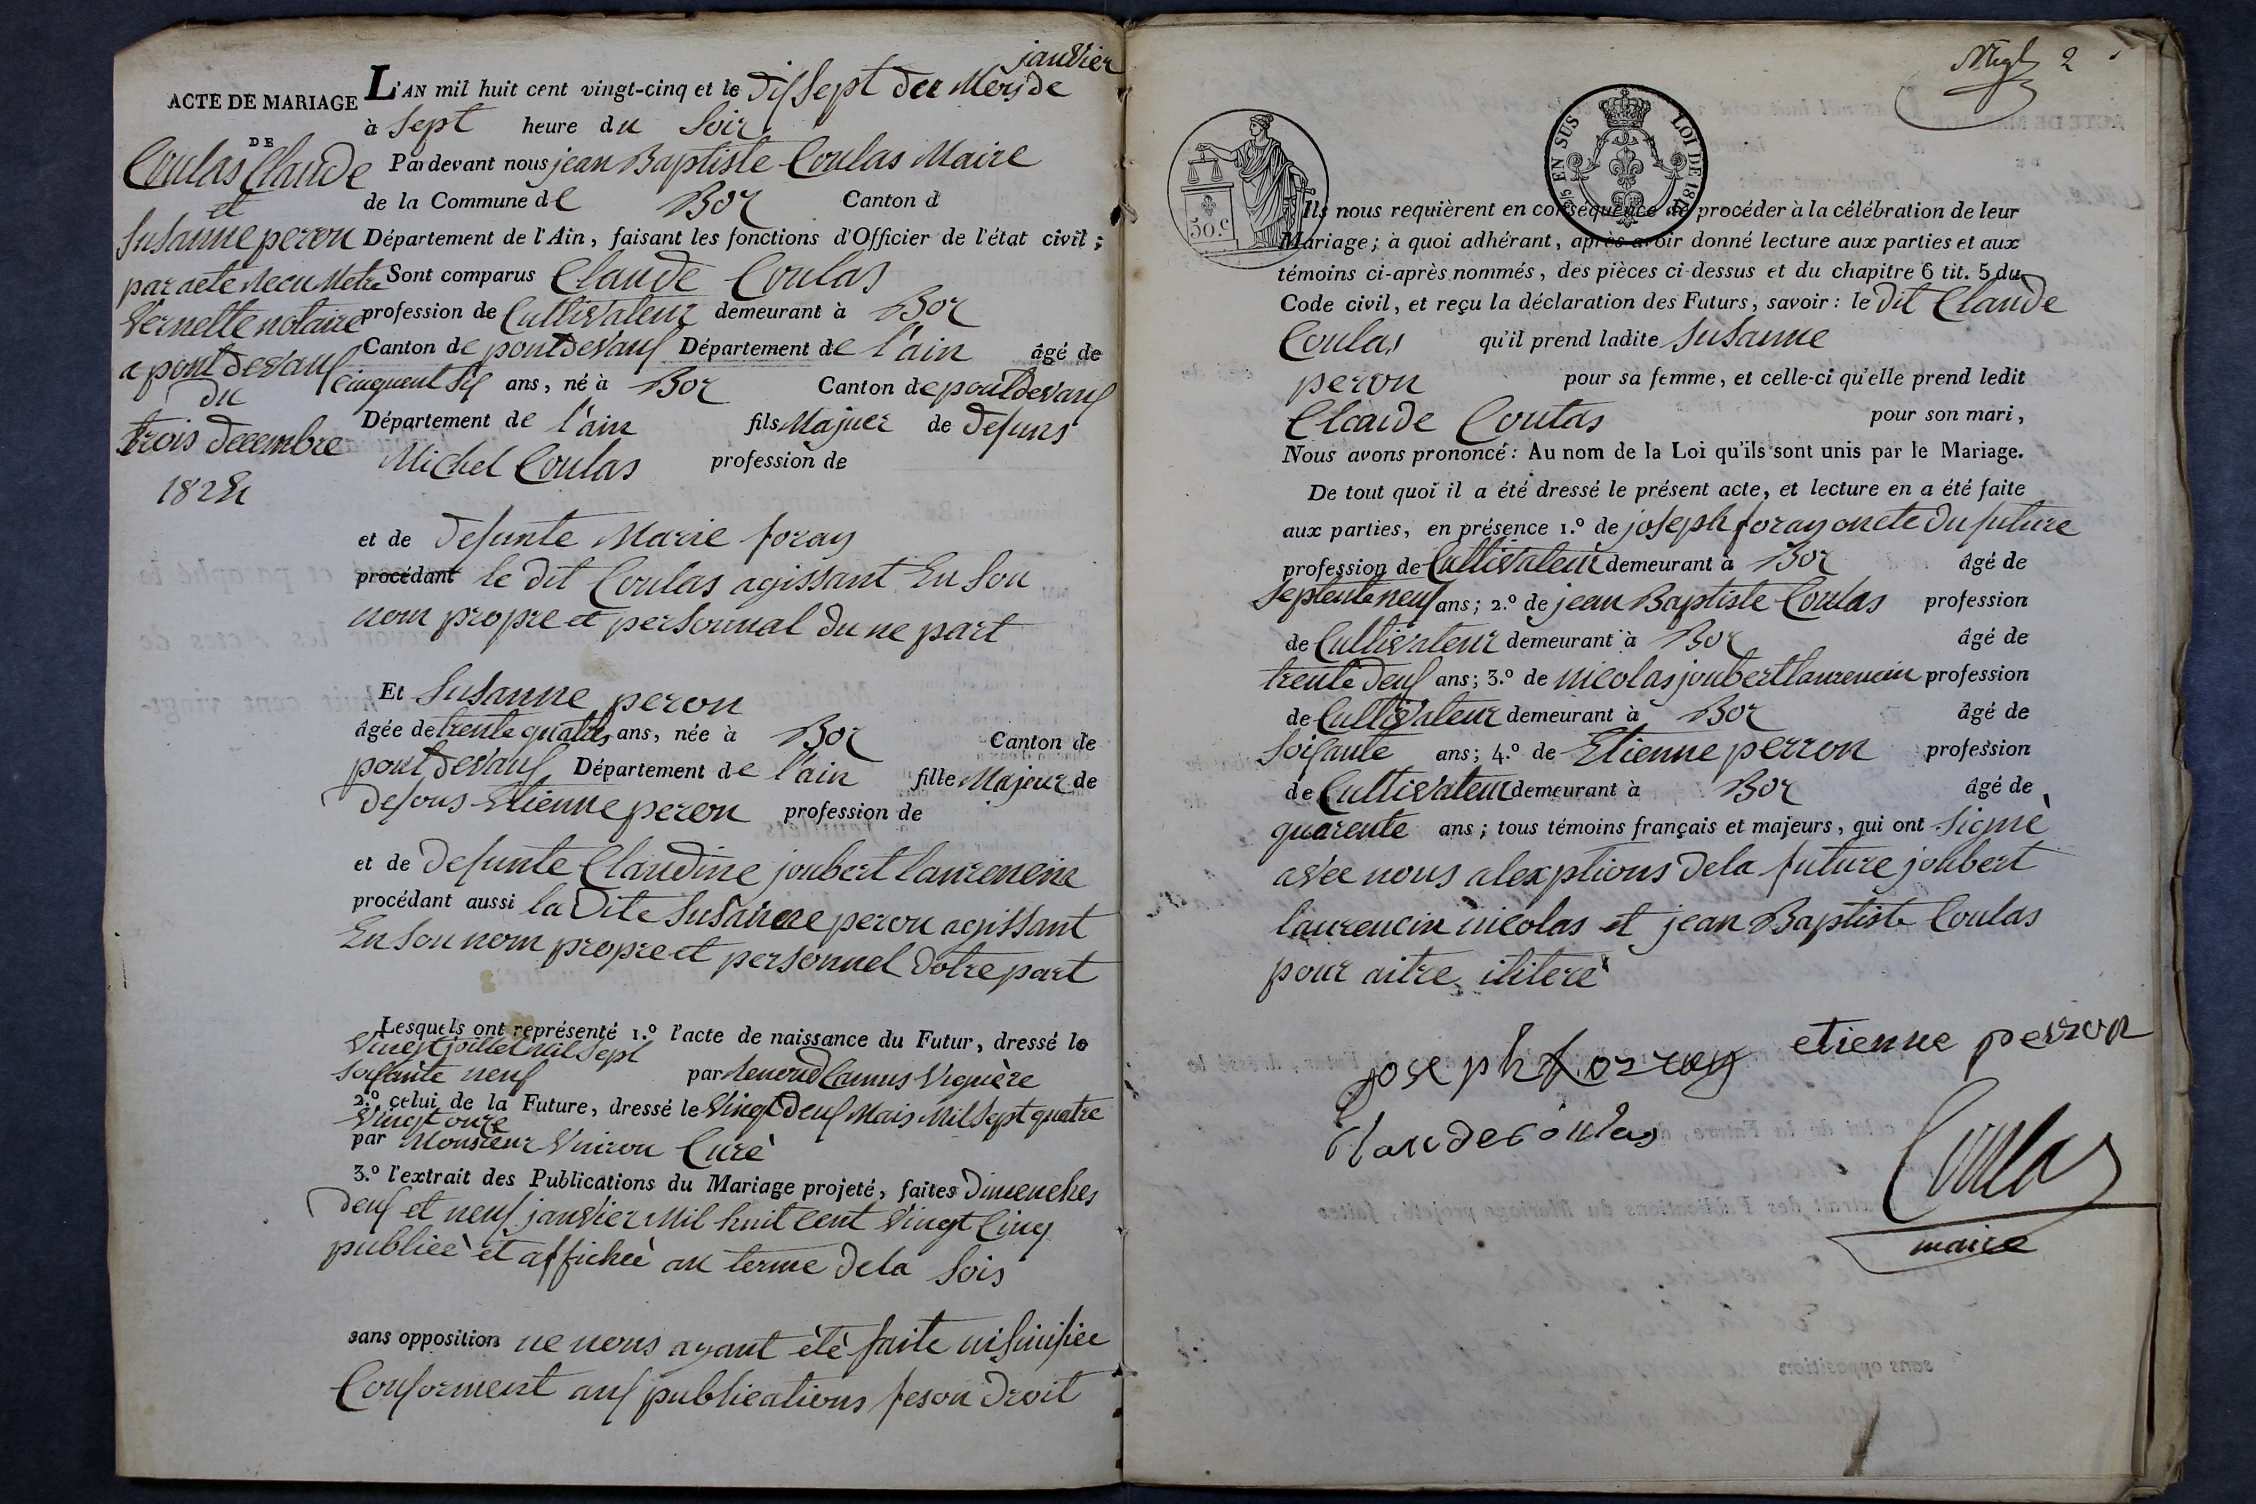 ACTE DE MARIAGE
DE
Coulas Claude
et
Susanne peron
par acte Recu Metre
Vernette notaire
a pont devaux
du
trois decembre
1824
janvier
L'AN mil huit cent vingt-cinq et le dixsept deu Mois de
à Sept heure du Soir
Pardevant nous jean Baptiste Coulas Maire
de la Commune de Boz Canton d
Département de l'Ain, faisant les fonctions d'Officier de l'état civil;
Sont comparus Claude Coulas
profession de Cultivateur demeurant à Boz
Canton de pontdevaux Département de l'ain âgé de
cinquent six ans, né à Boz Canton de pontdevaux
Département de l'ain fils Majuer de defuns
Michel Coulas profession de
et de defunte Marie foray
procédant le dit Coulas agissant En Son
nom propre et personnal du ne part
Et Susanne peron
âgée de trente quatres ans, née à Boz Canton de
pont devaux Département de l'ain fille Majeur de
defons Etienne peron profession de
et de defunte Claudine joubert laurencin
procédant aussi la dite Susanne peron agissant
En Son nom propre et personnel dotre part
Lesquels ont représenté 1.º l'acte de naissance du Futur, dressé le
Vingt joillet Mil Sept
Soixante neuf par Camus Viquère
2.º celui de la Future, dressé le Vingt deux Mais Mil Sept quatre
Vingt onze
par Monsieur Curè
3.º l'extrait des Publications du Mariage projeté, faites dimenches
deux et neuf janvier Mil huit Cent Vingt Cinq
publieè et afficheè au terme dela Lois
sans opposition ne nous ayant étè faite
Conforment aux publications feson droit
2
30.C
EN SUS
LOI DE 18
Ils nous requièrent en conséquence de procéder à la célébration de leur
Mariage; à quoi adhérant, après avoir donné lecture aux parties et aux
témoins ci-après nommés, des pièces ci-dessus et du chapitre 6 tit. 5 du
Code civil, et reçu la déclaration des Futurs, savoir: le dit Claude
Coulas qu'il prend ladite Susanne
peron pour sa femme, et celle-ci qu'elle prend ledit
Claude Coulas pour son mari,
Nous avons prononcé: Au nom de la Loi qu'ils sont unis par le Mariage.
De tout quoi il a été dressé le présent acte, et lecture en a été faite
aux parties, en présence 1.º de joseph foray oncte du future
profession de Cultivateur demeurant à Boz âgé de
Septente neuf ans; 2.º de jean Baptiste Coulas profession
de Cultivateur demeurant à Boz âgé de
trente deux ans; 3.º de nicolas joubert laurencin profession
de Cultivateur demeurant à Boz âgé de
Soixante ans; 4.º de Etienne perron profession
de Cultivateur demeurant à Boz âgé de
quarente ans; tous témoins français et majeurs, qui ont Signè
avec nous alexptions dela future joubert
laurencin nicolas et jean Baptiste Coulas
pour aitre ilitere
joseph forray etienne perron
claude coulas
Coulas
maire